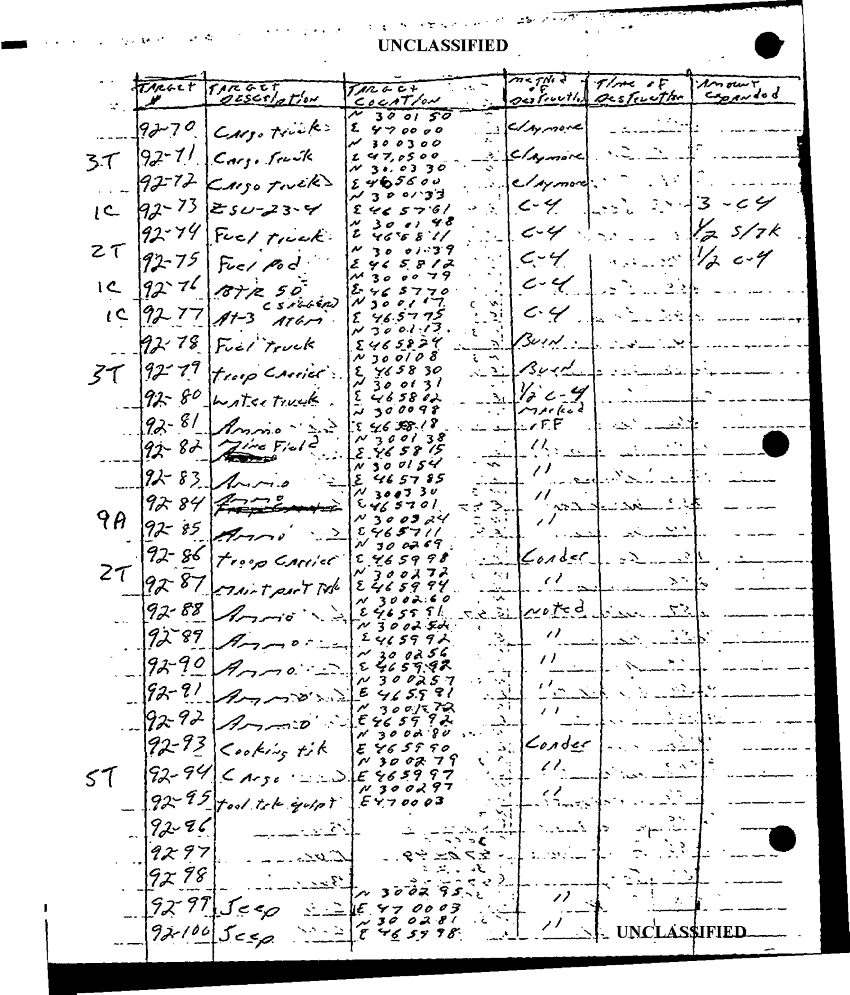 UNCLASSIFIED
TARGET # TARGET DESCRIPTION TARGET LOCATION METHOD OF DESTRUCTION TIME OF DESTRUCTION AMOUNT EXPANDED
92-70 Cargo trucks N 30 01 50 E 47 00 00 Claymore
3T 92-71 Cargo Truck N 30 03 00 E 47 05 00 Claymore
92-72 Cargo trucks N 30 03 30 E 46 56 00 Claymore
1C 92-73 ZSU-23-4 N 30 01 33 E 46 57 61 C-4 3 - C4
92-74 Fuel truck N 30 01 48 E 46 58 11 C-4 1/2 S/TK
2T 92-75 Fuel pod N 30 01 39 E 46 58 12 C-4 1/2 C-4
1C 92-76 BTR 50 N 30 00 79 E 46 57 70 C-4
1C 92-77 At-3 (SAGGER) ATGM N 30 01 17 E 46 57 75 C-4
92-78 Fuel Truck N 30 01 13 E 46 58 24 Burn
3T 92-79 troop Carrier N 30 01 08 E 46 58 30 Burn
92-80 water truck N 30 01 31 E 46 58 02 1/2 C-4
92-81 Ammo N 30 00 98 E 46 58 18 Marked OFF
92-82 Mine Field N 30 01 38 E 46 58 15 "
92-83 Ammo N 30 01 54 E 46 57 85 "
92-84 Ammo N 30 03 30 E 46 57 01 "
9A 92-85 Ammo N 30 03 24 E 46 57 11 "
92-86 troop Carrier N 30 02 69 E 46 59 98 Conder
2T 92-87 Maint part Trk N 30 02 72 E 46 59 94 "
92-88 Ammo N 30 02 60 E 46 59 91 noted
92-89 Ammo N 30 02 52 E 46 59 92 "
92-90 Ammo N 30 02 56 E 46 59 92 "
92-91 Ammo N 30 02 57 E 46 59 91 "
92-92 Ammo N 30 01 72 E 46 59 92 "
92-93 Cooking trk N 30 02 80 E 46 59 90 Conder
5T 92-94 Cargo N 30 02 79 E 46 59 97 "
92-95 tool trk equipt N 30 02 97 E 47 00 03 "
92-96
92-97
92-98
92-99 Jeep N 30 02 95 E 47 00 03 "
92-100 Jeep N 30 02 81 E 46 59 98 "
UNCLASSIFIED